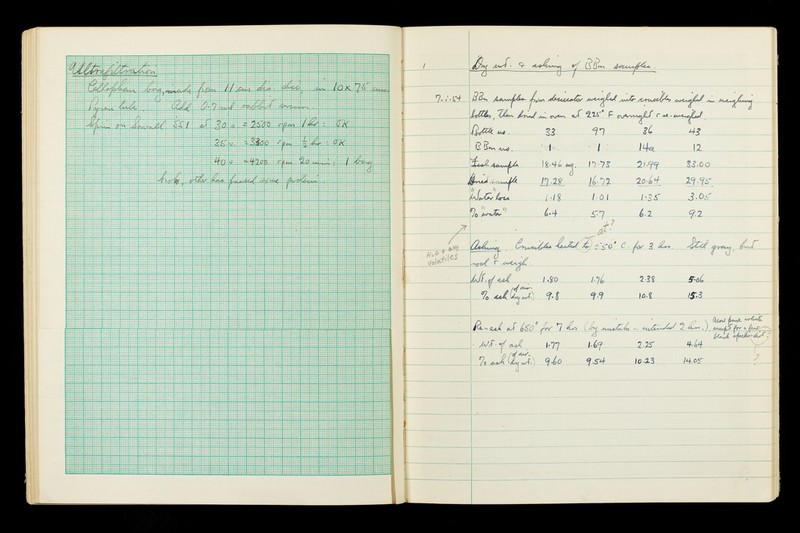 Ultrafiltration
Cellophane bag, made from 11 cm dia. disc in 10 x 75 mm
Pyrex tube. Add 0.7 ml rabbit serum.
Spin on Sorvall SS1 at 30 v. = 2500 rpm 1 hr : OK
35 v. = 3300 rpm ½ hr : OK
40 v. = 4200 rpm 20 min : 1 bag
broke, other has passed some protein.
1
Dry wt. & ashing of BBm samples
7.i.54 BBm samples from desiccator weighed into crucibles weighed in weighing
bottles, then dried in oven at 225° F overnight & re-weighed
Bottle no. 33 97 36 43
BBm no. 1 1 14a 12
Fresh sample 18.46 mg. 17.73 21.99 33.00
Dried sample 17.28 16.72 20.64 29.95
"Water" loss 1.18 1.01 1.35 3.05
% "water" 6.4 5.7 6.2 9.2
at?
H₂O & other
volatiles
Ashing. Crucibles heated to 550° C for 3 hrs. Still grey, but
cool & weigh
Wt. of ash 1.80 1.76 2.38 5.06
% ash (of dry wt.) 9.8 9.9 10.8 15.3
Re-ash at 650° for 7 hrs (by mistake - intended 2 hrs.)
Now pure white
except for a few
black specks
Wt. of ash 1.77 1.69 2.25 4.64
% ash (of dry wt.) 9.60 9.54 10.23 14.05
?